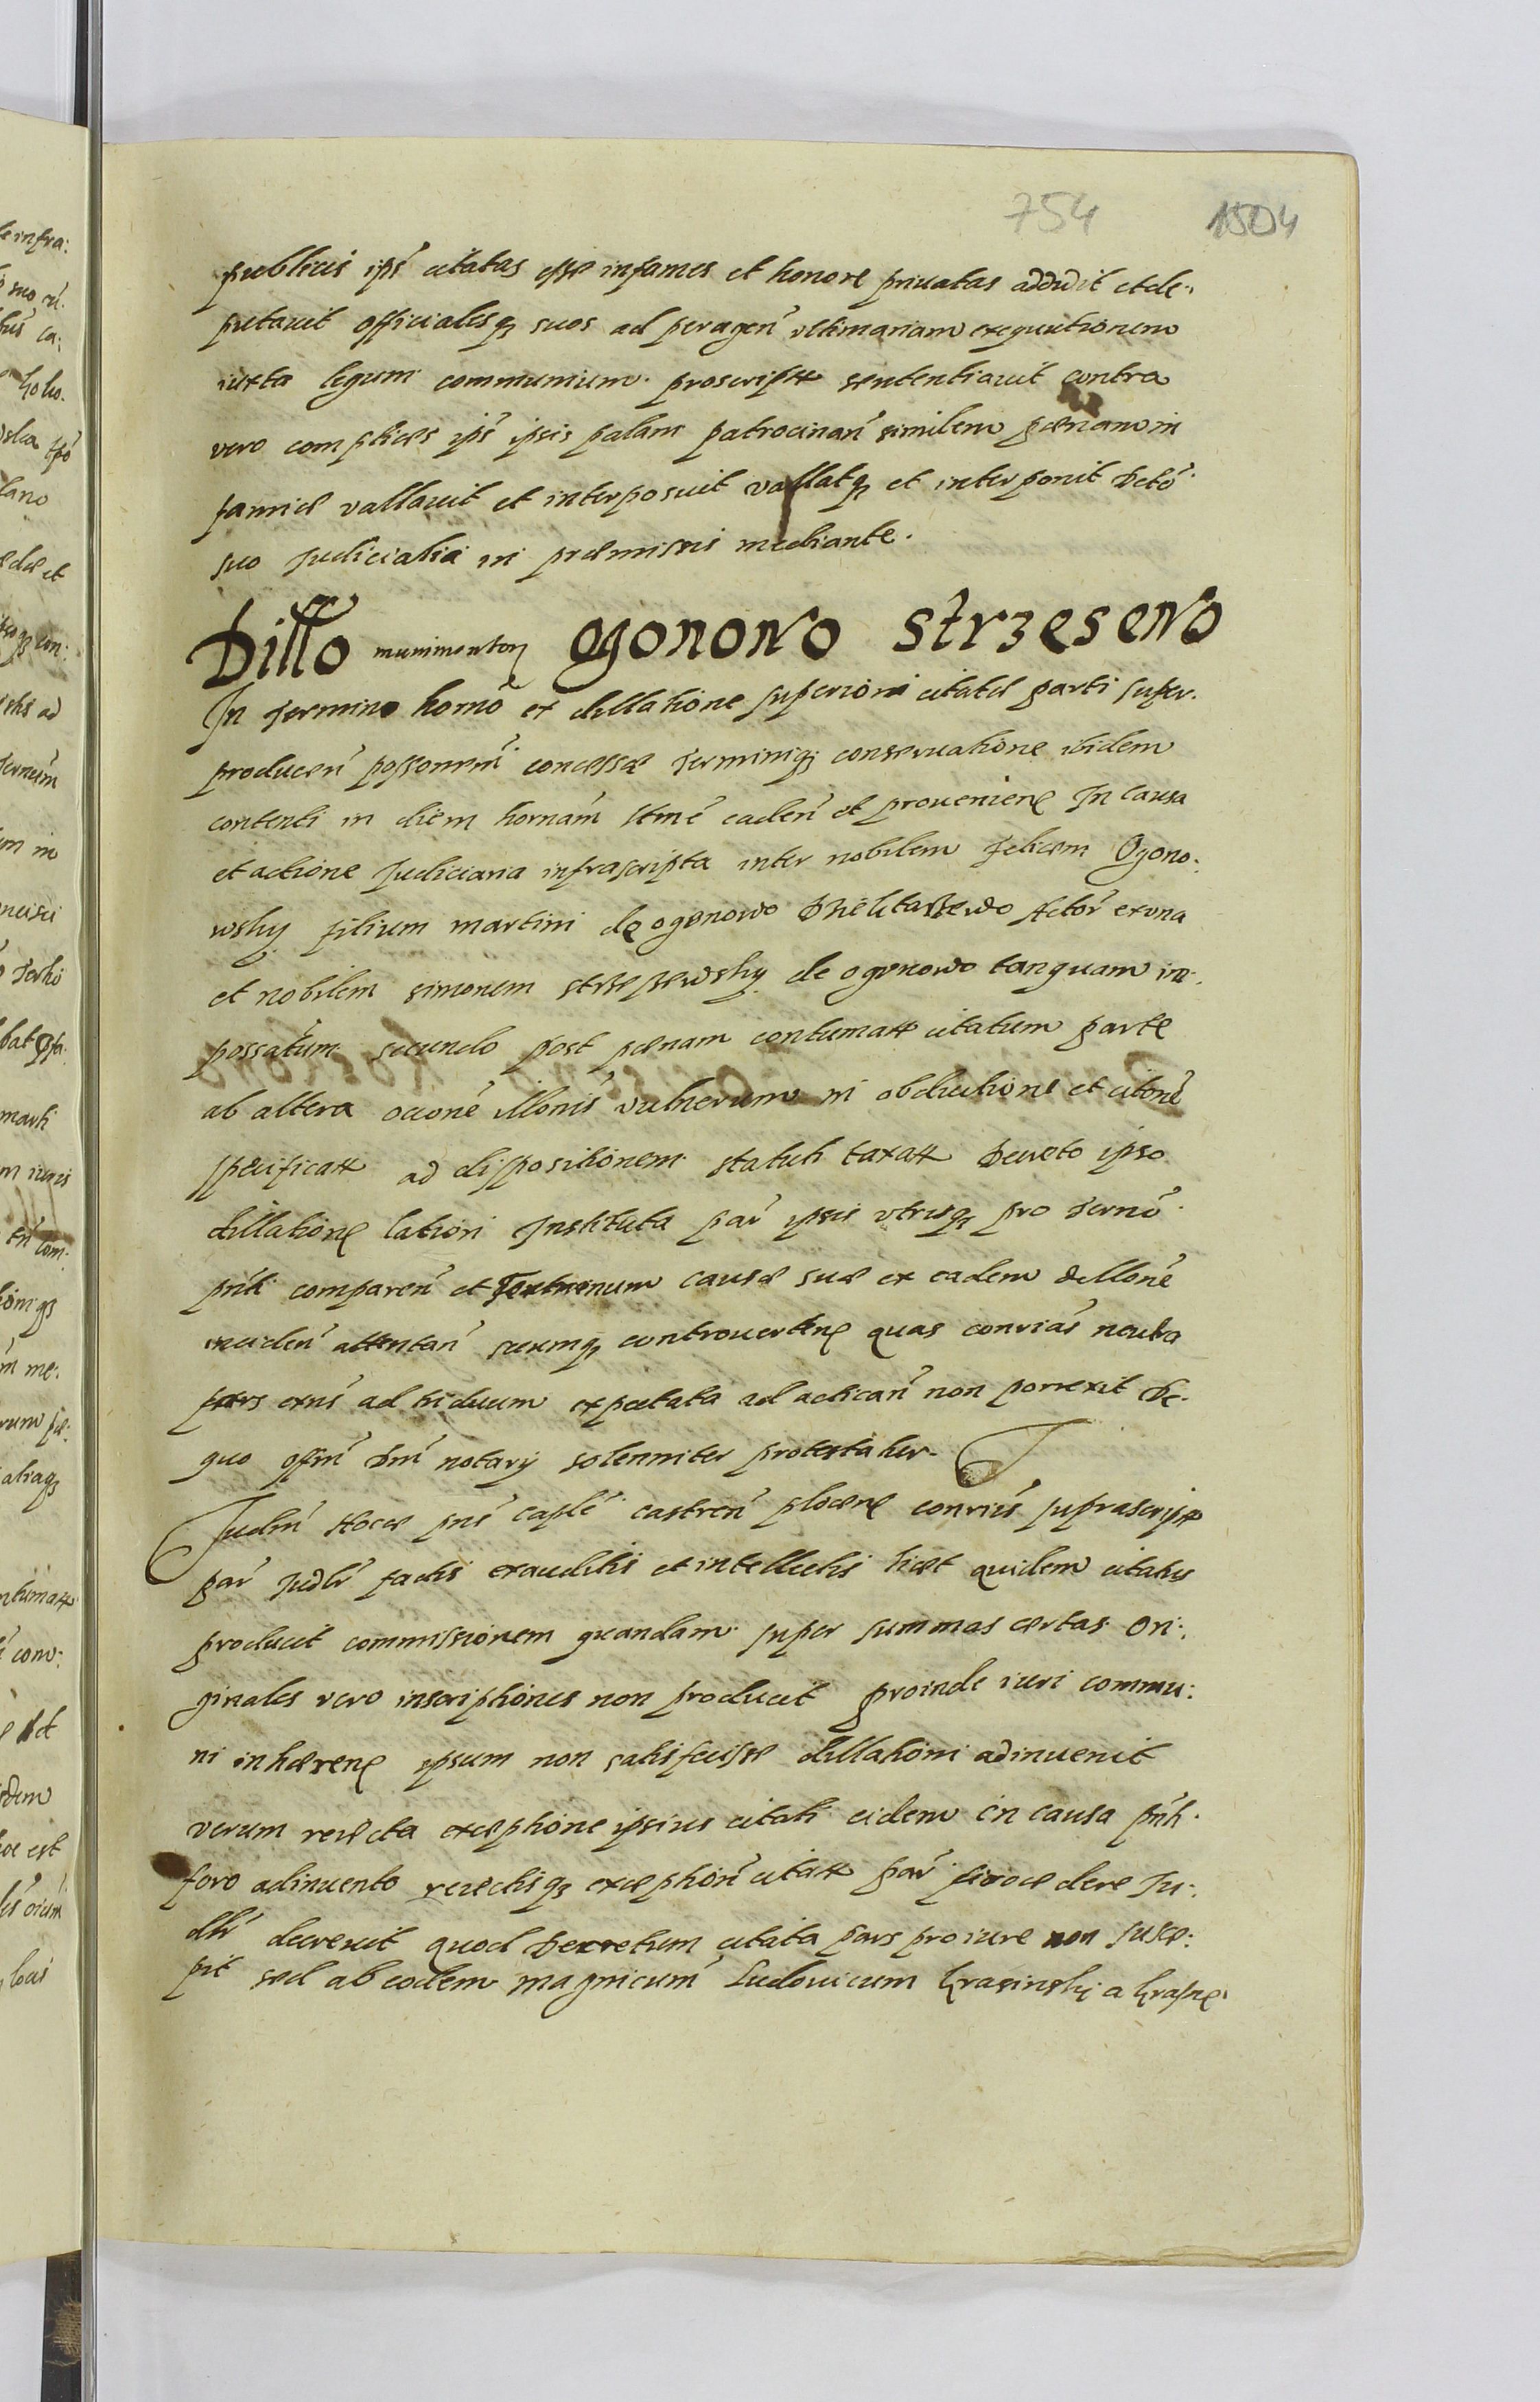 754 1504
publicis ips̄ citatas esse infames et honore priuatas addidit et de:
putauit officialesq̨ suos ad peragen̄ vltimariam exequutionem
iuxta legum communium proscriptt sententiauit contra
vero complices ips̄ ipsis palam patrocinan̄ similem pœnam in
famiæ vallauit et interposuit vallatq̨ et interponit Dcto
suo Judicialia in præmissis mediante.
Dillo munimentor Ogonowo Strzesewo
In termino horno ex dillatione superiori citatæ parti super.
producen̄ concessæ terminiq̨ conseruatione ibidem
contenti in diem hornam caden̄ et prouenien In causa
et actione Judiciaria infrascripta inter nobilem felicem Ogono:
wsky filium martini de ogonowo Actor̄ ex vna
et nobilem simonem de ogonowo tanquam im:
possatum secundo post pœnam contumatt citatum parte
ab altera occone illonis vulnerum in obductione et citone
specificatt ad dispositionem statuti taxatt Decreto ipso
dillatione latiori Instituta par̄ ipsis vtrisq̨ pro termo
pnti comparen̄ et Terminum causæ suæ ex eadem dillone
inciden̄ attentan̄ secumq̨ controuerten quas conrias neutra
pars ad triduum expectata ad actican̄ non porrexit De:
quo offm̄ Dni notarij solenniter protestatur.
Judm̄ pns̄ castren̄ plocen conriis suprascriptt
par̄ Judlr̄ factis exauditis et intellectis licet quidem citatus
producit commissionem quandam super summas certas Ori:
ginales vero inscriptiones non producit proinde iuri commu:
ni inhæren ipsum non satisfecisse dillationi adinuenit
verum reiecta exceptione ipsius citati eidem in causa pnti
foro adinuento reiectisq̨ exception̄ citatt par̄ procedere Ju:
dlr̄ decreuit quod Decretum citata pars pro iure non susce:
pit sed ab eodem magnicum Ludouicum Krasinsky a Krasne